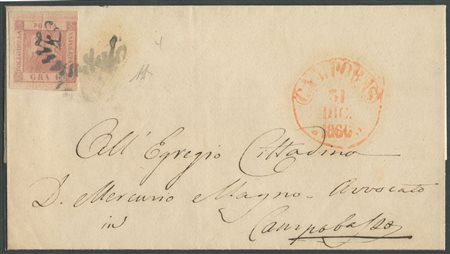 GRA
CAMPOBAS
31
DIC.
1860
All' Egregio Cittadino
D. Mercurio Magno = Avvocato
in Campobasso